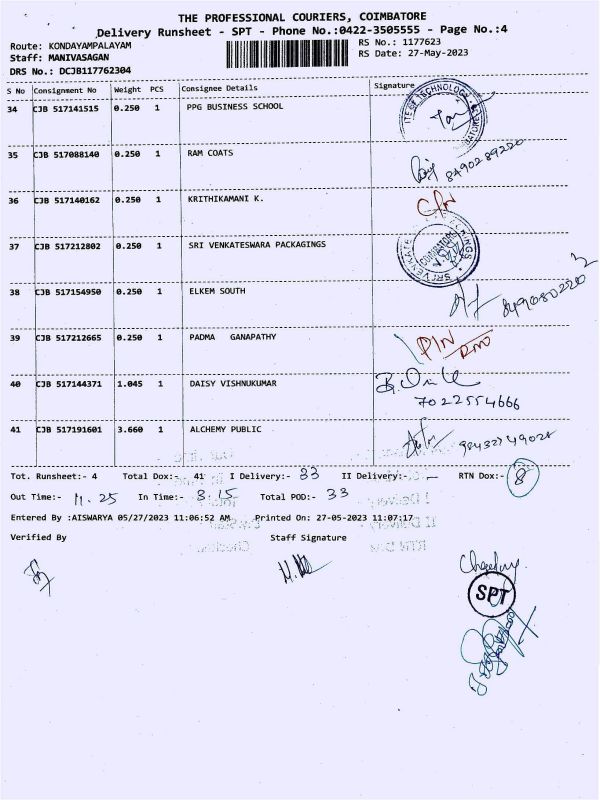 THE PROFESSIONAL COURIERS, COIMBATORE
Delivery Runsheet - SPT - Phone No.:0422-3505555 - Page No.:4
Route: KONDAYAMPALAYAM RS No.: 1177623
Staff: MANIVASAGAN RS Date: 27-May-2023
DRS No.: DCJB117762304
S No Consignment No Weight PCS Consignee Details Signature
34 CJB 517141515 0.250 1 PPG BUSINESS SCHOOL
35 CJB 517088140 0.250 1 RAM COATS
36 CJB 517140162 0.250 1 KRITHIKAMANI K.
37 CJB 517212802 0.250 1 SRI VENKATESWARA PACKAGINGS
38 CJB 517154950 0.250 1 ELKEM SOUTH
39 CJB 517212665 0.250 1 PADMA GANAPATHY
PIN
40 CJB 517144371 1.045 1 DAISY VISHNUKUMAR
7022554666
41 CJB 517191601 3.660 1 ALCHEMY PUBLIC
Tot. Runsheet:- 4 Total Dox:- 41 I Delivery:- 33 II Delivery:- - RTN Dox:- 8
Out Time:- 11.25 In Time:- 3.15 Total POD:- 33
Entered By :AISWARYA 05/27/2023 11:06:52 AM Printed On: 27-05-2023 11:07:17
Verified By Staff Signature
SPT